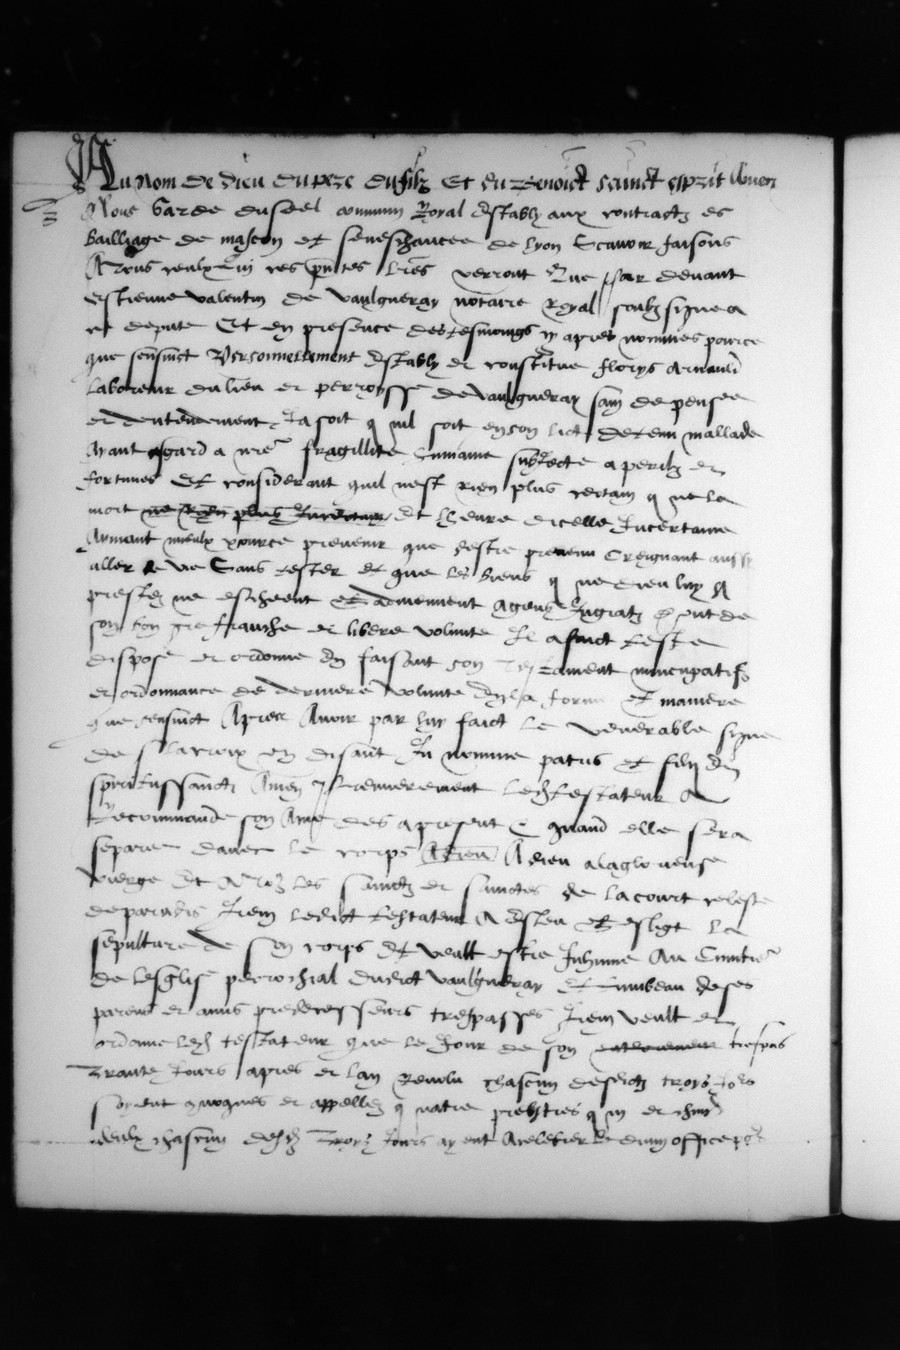 Au Nom de dieu du pere du filz Et du Benoict sainct esprit Amen
Nous Garde du seel commun Royal estably aux contractz es
Bailliage de mascon et seneschaucee de lyon scavoir faisons
A Tous ceulx qui ces pntes lres verront Que par devant
estienne valentin de vaulgneray notaire Royal soubzsigne a
ce depute Et en presence des tesmoings cy apres nommes pource
que sensuict Personnellement estably et constitue florys Arnauld
laboreur du lieu et perroysse de vaulgneray sain de pensee
et dentendement Ja soit q uil soit en son lict detenu mallade
Ayant esgard a nre fragillite humaine subjecte a perilz et
fortunes Et considerant quil nest rien plus certain q ne la
mort ne rien plus Incertain Et lheure dicelle Incertaine
Aymant mieulx prevenir que destre prevenu Creignant aussi
aller de vie Sans tester et que les biens q ne dieu luy A
prestez ne escheent Et adviennent a gens Ingratz de
son bon gre franche et libere volunte Il a faict teste
dispose et ordonne En faisant son Testament nuncupatifz
et ordonnance de derniere volunte En la forme Et maniere
que sensuict Apres Avoir par luy faict le venerable signe
de la croix en disant In nomine patris et filii et
spiritussancti Amen Premierement ledit testateur A
Recommande son Ame des a present et quand elle sera
separee davec le corps A dieu A dieu a la glorieuse
vierge Et A Tous les sainctz et sainctes de la court celeste
de paradis Item ledict testateur A esleu Et eslegt la
sepulture de son corps Et veult estre Inhume Au Cimitiere
de lesglise perrochial dudict vaulgneray Et tumbeau de ses
parens et amis predecesseurs trespasses Item veult et
ordonne ledit testateur que le Jour de son enterrement trespas
Trante Jours apres et lan Revolu chascun desdictz troys Jours
soyent et appellez q uatre prebtres q ui et
deulx chascun desd Troys Jours ayent A celebrer le divin office po